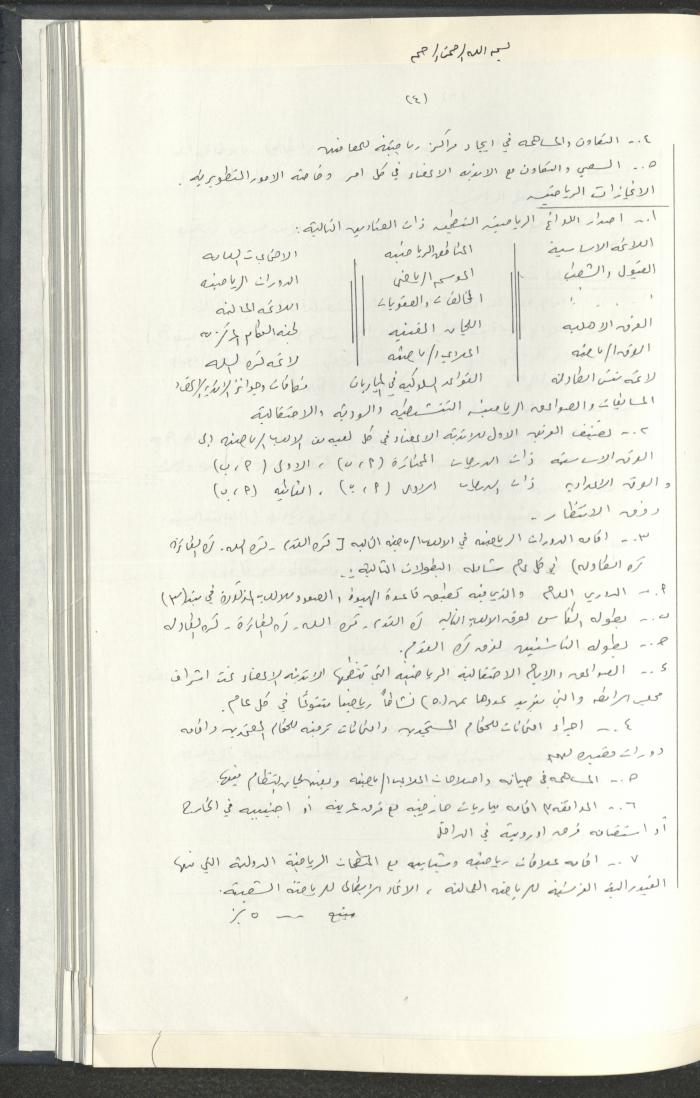 بسم الله الرحمن الرحيم
(٤)
٤ .- التعاون والمساهمة في ايجاد مراكز رياضية للمعاقين
٥ .- السعي والتعاون مع الاندية الاعضاء في كل امر وخاصة الامور التطويرية .
الانجازات الرياضية
١ .- اصدار اللوائح الرياضية التنظيمية ذات العناوين التالية :
اللائحة الاساسية المناطق الرياضية الاجتماعات العامة
القبول والشطب الموسم الرياضي الدورات الرياضية
المخالفات والعقوبات اللائحة المالية
الفرق الاهلية اللجان الفنية لجنة الحكام المركزية
الفرق الرياضية الملاعب الرياضية لائحة كرة السلة
لائحة تنس الطاولة القواعد السلوكية في المباريات مكافآت وجوائز
المسابقات والصواعق الرياضية التنشيطية والودية والاحتفالية
٢ .- تصنيف الفرق الاول للاندية الاعضاء في كل لعبة من الالعاب الرياضية الى
الفرق الاساسية ذات الدرجات الممتازة (٢، ب) ، الاولى (٢، ب)
والفرق الاعدادية ذات الدرجات الاولى (٢، ب) ، الثانية (٢، ب)
وفرق الانتظار .-
٣ .- اقامة الدورات الرياضية في الالعاب الرياضية التالية [ كرة القدم - كرة السلة - كرة الطائرة
كرة الطاولة ) في كل عام شاملة البطولات التالية :
٢ .- الدوري العام والذي فيه تطبق قاعدة الهبوط والصعود للالعاب المذكورة في بند (٣)
ب .- بطولة الكأس لفرق الالعاب التالية كرة القدم - كرة السلة - كرة الطائرة - كرة الطاولة
ج .- بطولة الناشئين لفرق كرة القدم .
٤ .- الصواعق والايام الاحتفالية الرياضية التي تنظمها الاندية الاعضاء تحت اشراف
مجلس الرابطة والتي يزيد عددها عن (٥٠) نشاطاً رياضياً متنوعاً في كل عام .
٤ .- اجراء امتحانات للحكام المستجدين وامتحانات ترفيه للحكام المعتمدين واقامة
دورات قصيرة لهم
٥ .- المساهمة في صيانة واصلاحات الملاعب الرياضية وتعيين لجان انتظام فيها .
٦ .- الموافقة ٣ اقامة مباريات خارجية مع فرق عربية أو اجنبية في الخارج
أو استضافة فرق اوروبية في الداخل
٧ .- اقامة علاقات رياضية وشبابية مع المنظمات الرياضية الدولية التي منها
الفيدرالية الفرنسية للرياضة العمالية ، الاتحاد الايطالي للرياضة الشعبية .
يتبع